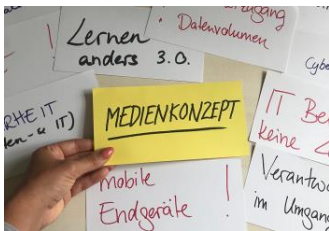 Zugang
Datenvolumen
!
Lernen
anders 3.0.
Cybe
RHEIT
en-& IT)
MEDIENKONZEPT
IT Be
keine Z
mobile
Endgeräte !
Verantwo
im Umgang